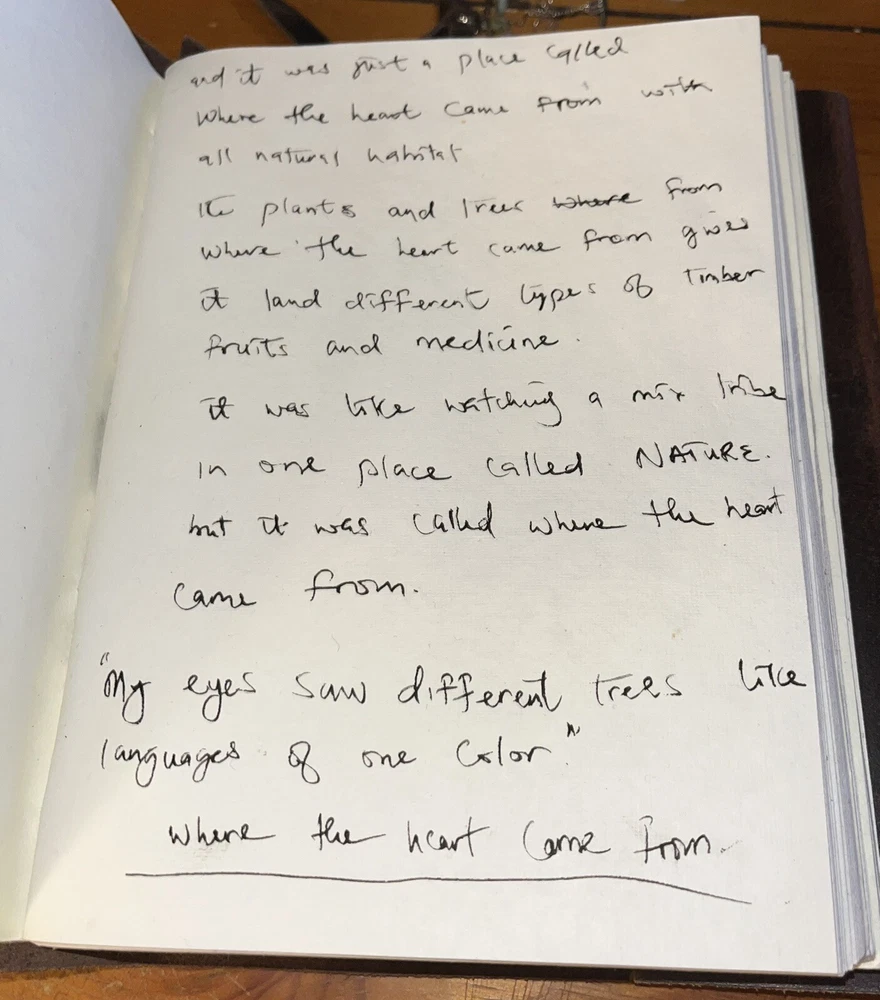 and it was just a place called
where the heart came from with
all natural habitat
It plants and trees where from
where the heart came from gives
it land different types of Timber
fruits and medicine.
it was like watching a mix tribe
in one place called NATURE.
but it was called where the heart
came from.
"My eyes saw different trees like
languages of one color".
where the heart came from.